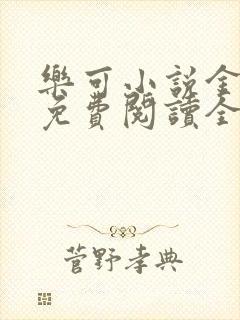 樂可小説全
免費閱讀全
菅野孝典